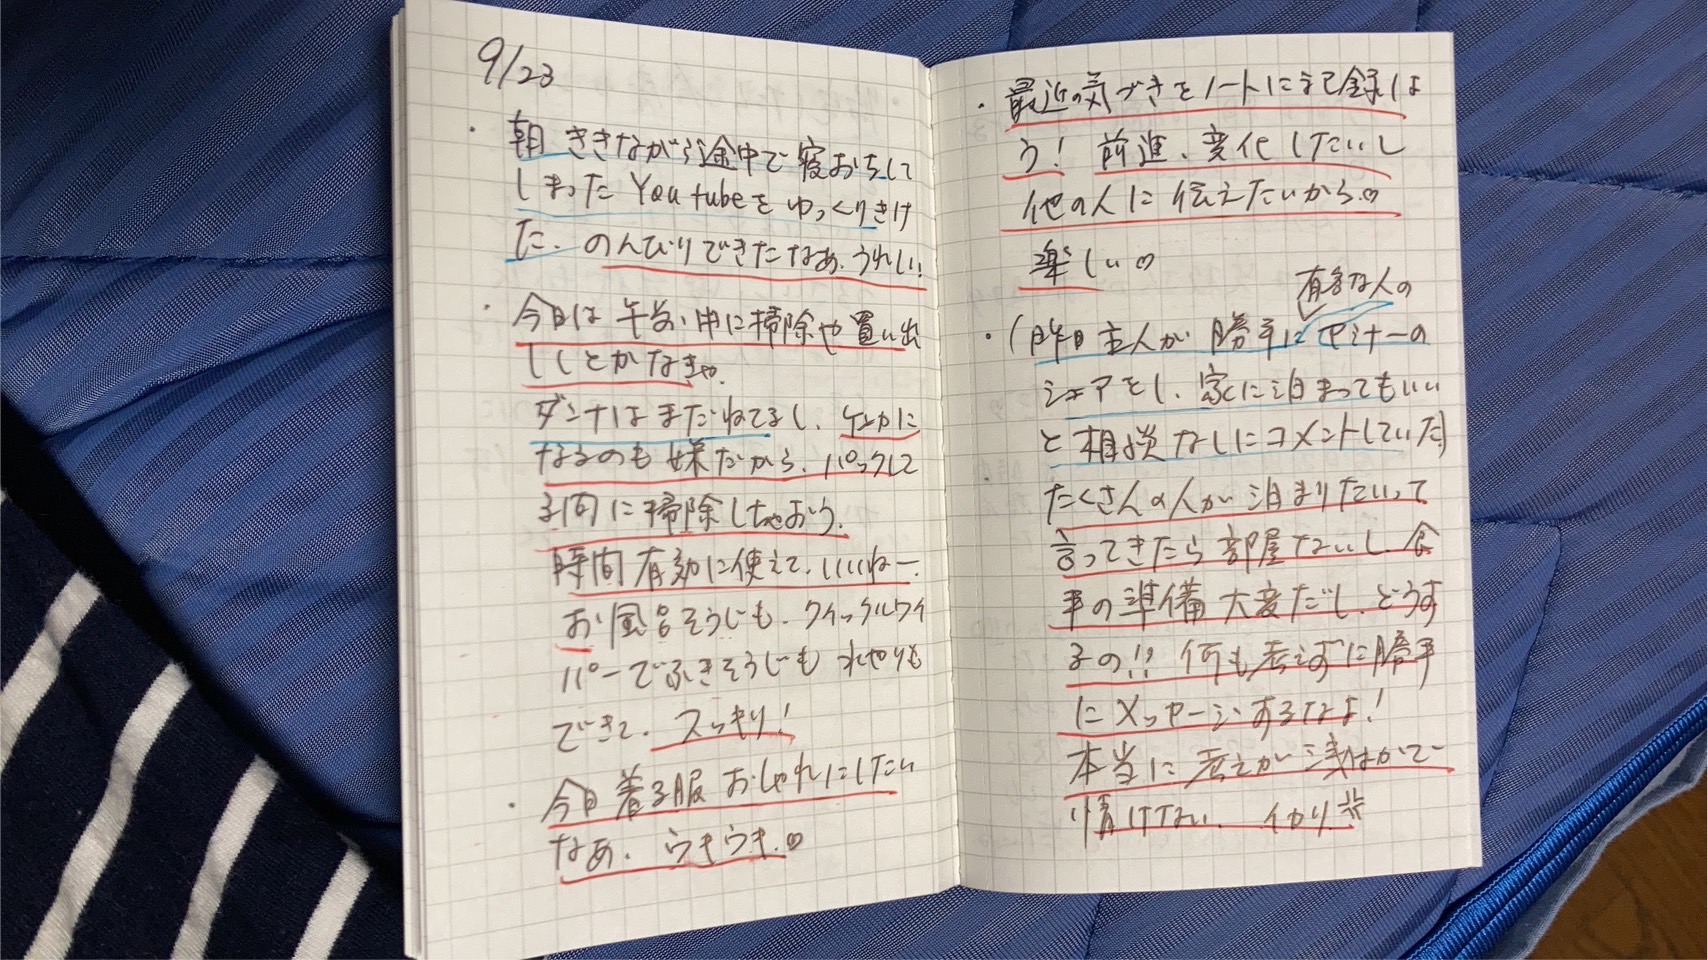 9/23
・朝 ききながら途中で寝おちして
しまった Youtubeを ゆっくりきけ
た. のんびりできたなぁ. うれしい!
・今日は 午前中に掃除や買い出
ししとかなきゃ.
ダンナはまだねてるし、ケンカに
なるのも嫌だから、パックして
る間に掃除しちゃおう.
時間有効に使えて、いいねー.
お風呂そうじも、クイックルワイ
パーでふきそうじも 水やりも
できて、スッキリ!
・今日 着る服 おしゃれにしたい
なぁ. うきうき.♡
・最近の気づきをノートに記録しよ
う! 前進、変化したいし
他の人に 伝えたいから.♡
楽しい♡
有名な人の
・(昨日 主人が 勝手に セミナーの
シェアをし、家に泊まってもいい
と相談なしにコメントしていた)
たくさんの人が 泊まりたいって
言ってきたら部屋ないし、食
事の準備 大変だし、どうす
るの!! 何も考えずに勝手
にメッセージするなよ!
本当に 考えが 浅はかで
情けない. イカリ